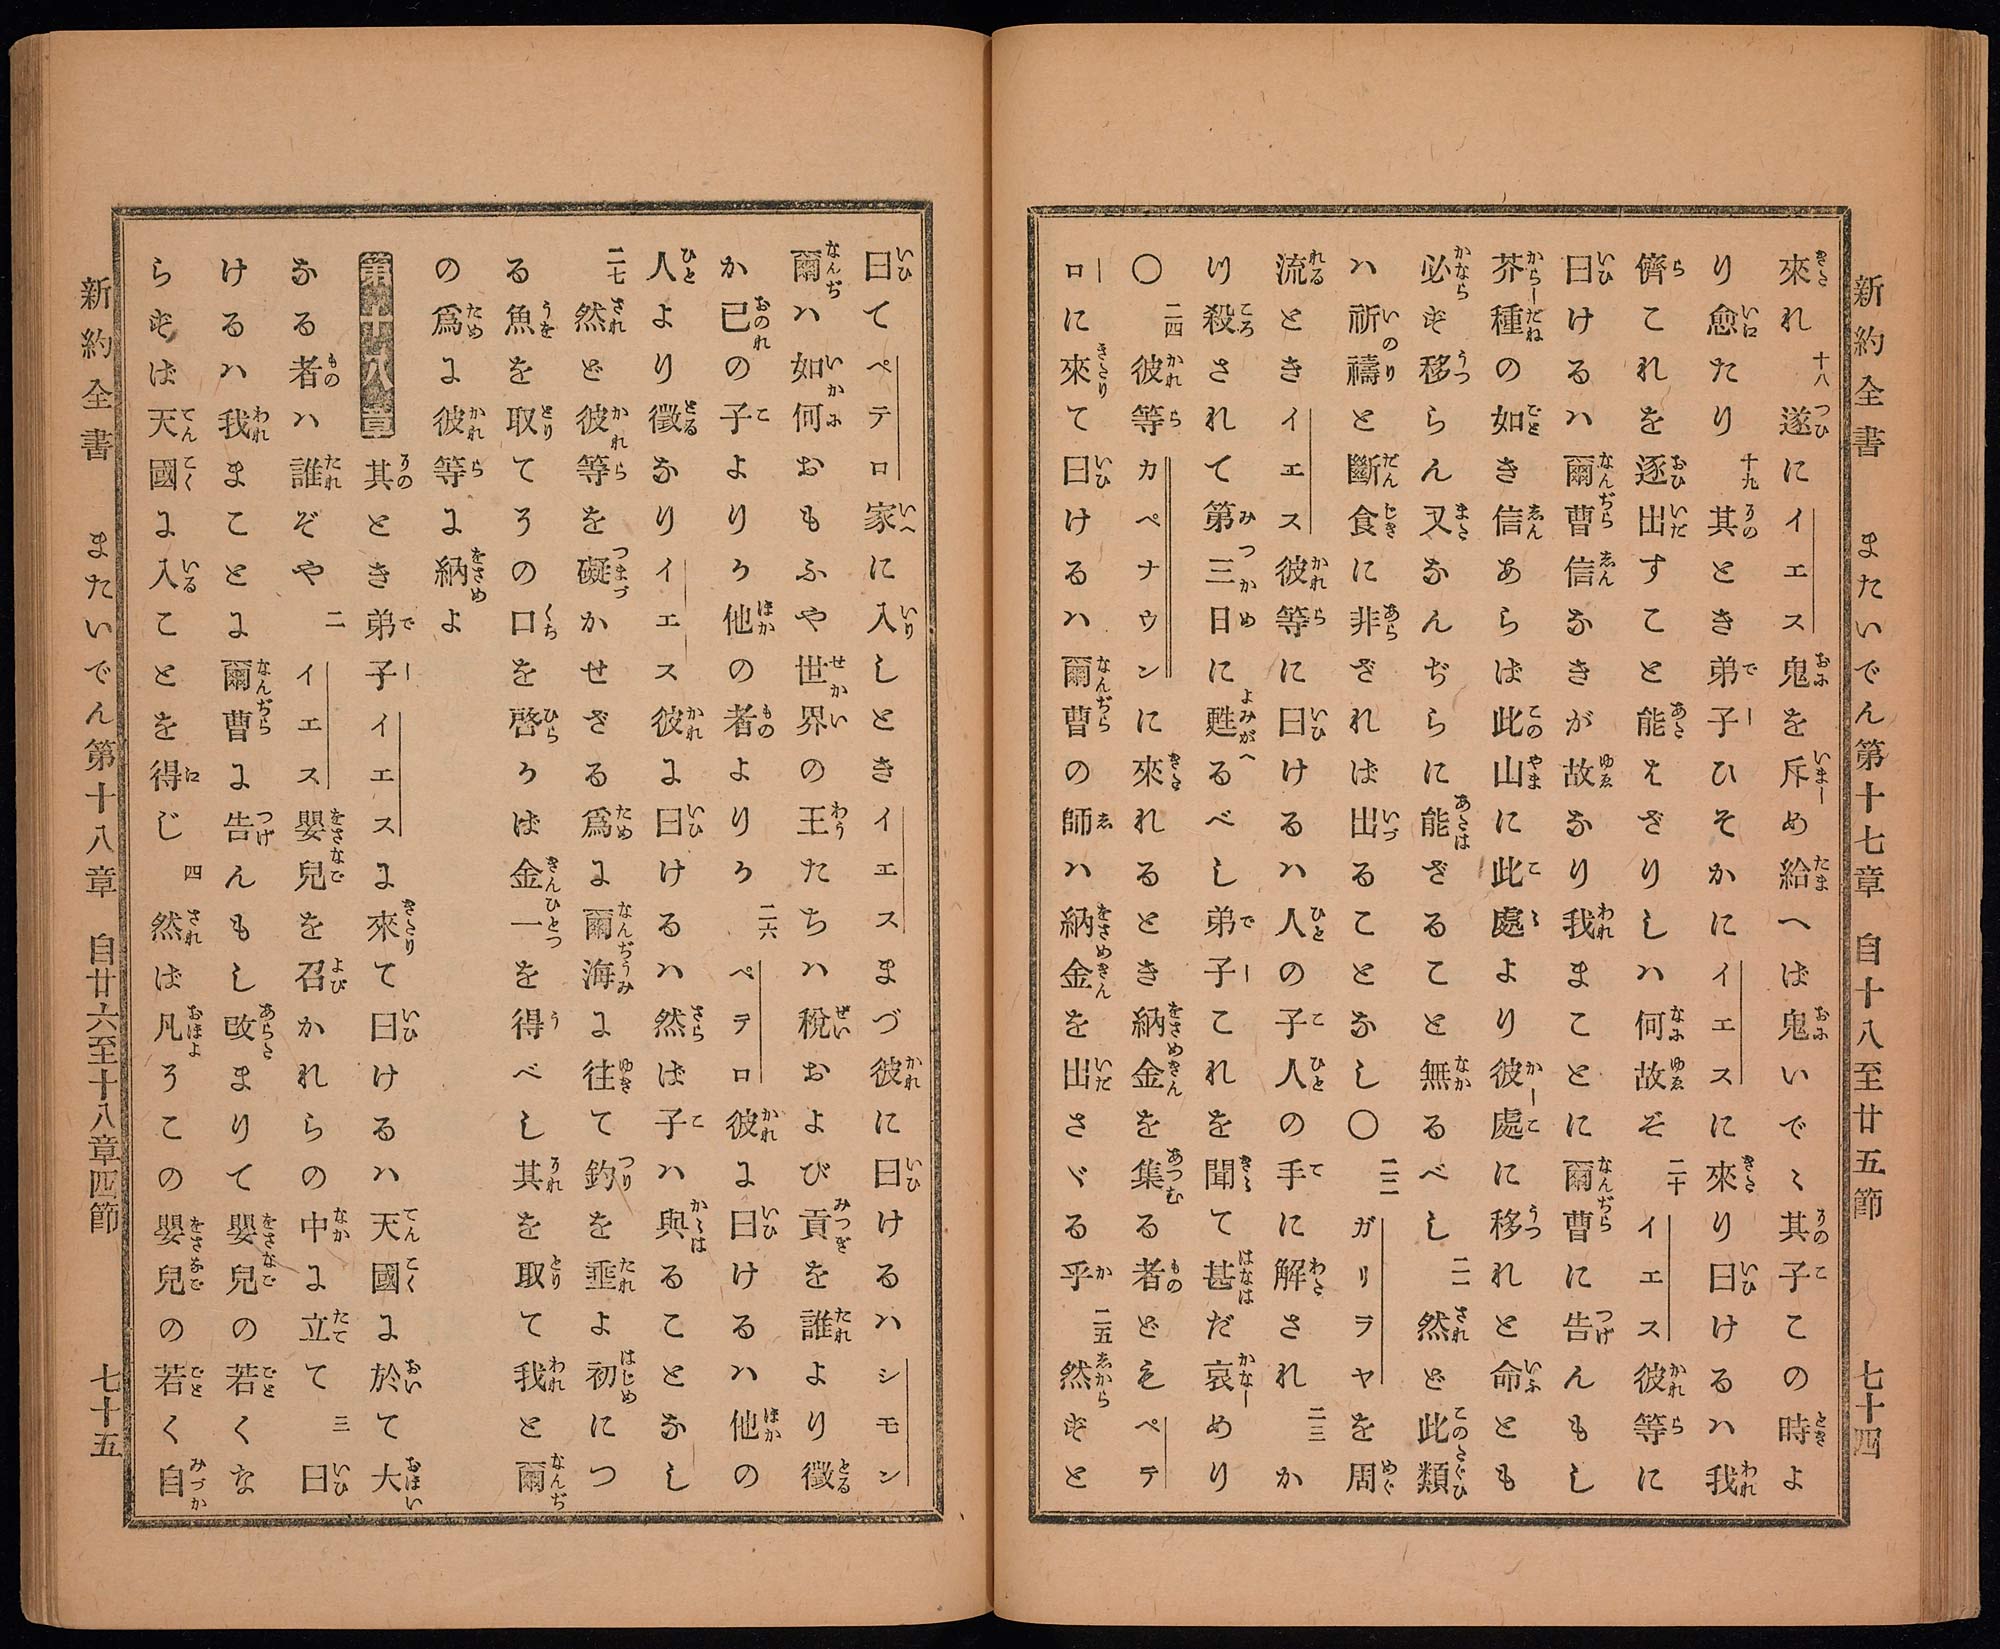 新約全書 またいでん第十七章 自十八至廿五節 七十四
來れ 十八 遂にイエス鬼を斥め給へば鬼いでゝ其子この時よ
り愈たり 十九 其とき弟子ひそかにイエスに來り曰けるハ我
儕これを逐出すこと能はざりしハ何故ぞ 二十 イエス彼等に
曰けるハ爾曹信なきが故なり我まことに爾曹に告んもし
芥種の如き信あらば此山に此處より彼處に移れと命とも
必ず移らん又なんぢらに能ざること無るべし 二一 然ど此類
ハ祈禱と斷食に非ざれば出ることなし〇 二二 ガリラヤを周
流ときイエス彼等に曰けるハ人の子人の手に解され 二三 か
り殺されて第三日に甦るべし弟子これを聞て甚だ哀めり
〇 二四 彼等カペナウンに來れるとき納金を集る者どもペテ
ロに來て曰けるハ爾曹の師ハ納金を出さゞる乎 二五 然ずと
曰てペテロ家に入しときイエスまづ彼に曰けるハシモン
爾ハ如何おもふや世界の王たちハ稅および貢を誰より徵
か己の子よりか他の者よりか 二六 ペテロ彼に曰けるハ他の
人より徵なりイエス彼に曰けるハ然ば子ハ與ることなし
二七 然ど彼等を礙かせざる爲に爾海に往て釣を垂よ初につ
る魚を取てその口を啓かば金一を得べし其を取て我と爾
の爲に彼等に納よ
第十八章 其とき弟子イエスに來て曰けるハ天國に於て大
なる者ハ誰ぞや 二 イエス嬰兒を召かれらの中に立て 三 曰
けるハ我まことに爾曹に告んもし改まりて嬰兒の若くな
らずば天國に入ことを得じ 四 然ば凡そこの嬰兒の若く自
新約全書 またいでん第十八章 自廿六至十八章四節 七十五